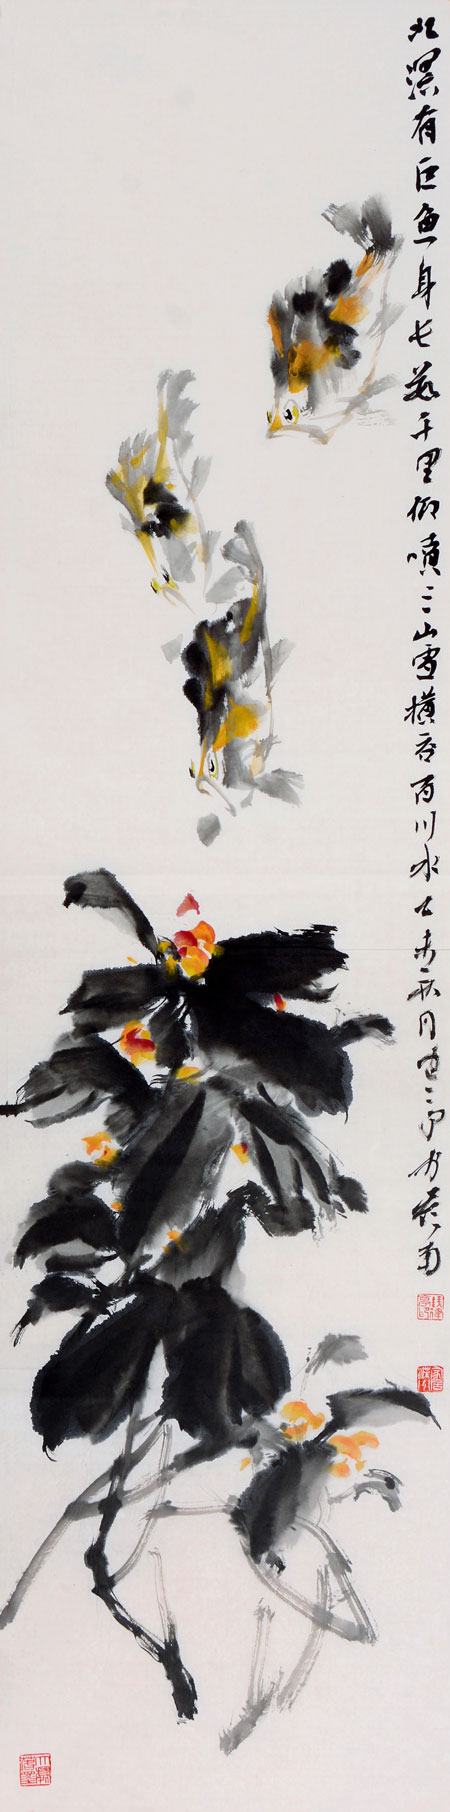 北溟有巨鱼身长数千里仰喷三山雪横吞百川水乙未秋月 岭南